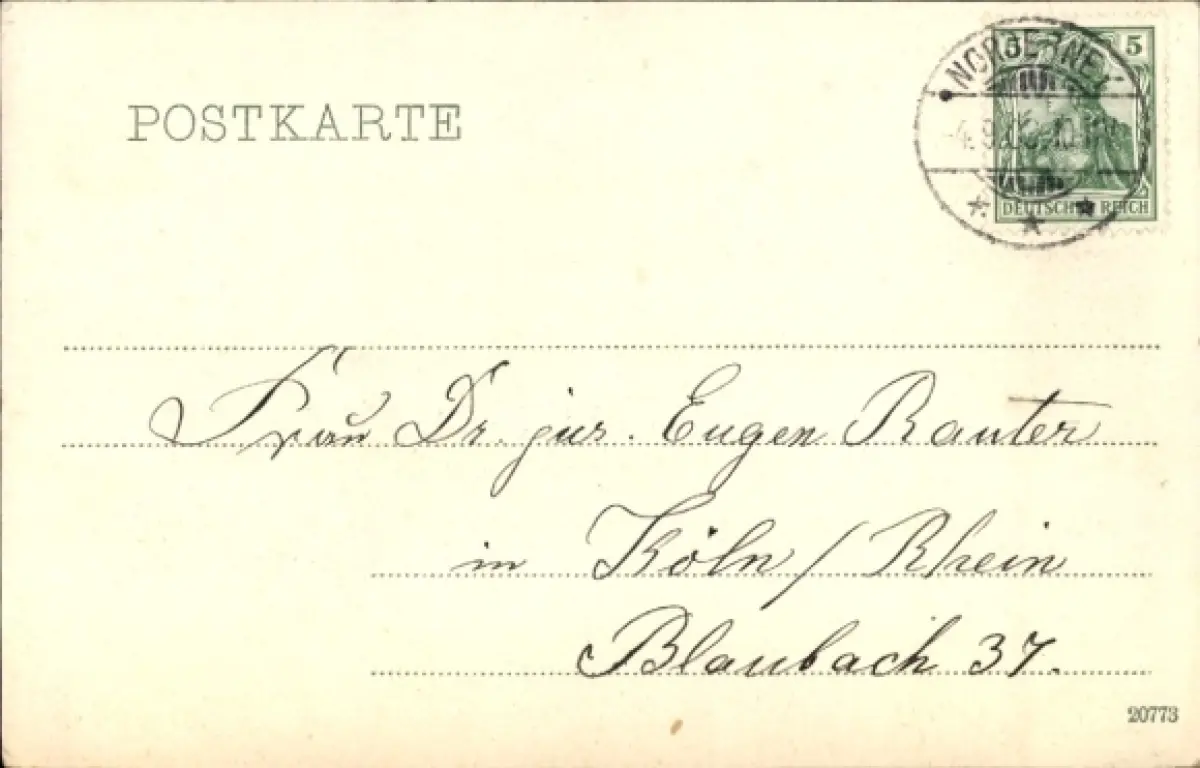 POSTKARTE
5 5
NORDERNEY
4.9.06.
DEUTSCHES REICH
Frau Dr. jur. Eugen Rauter
in Köln / Rhein
Blaubach 37.
20773